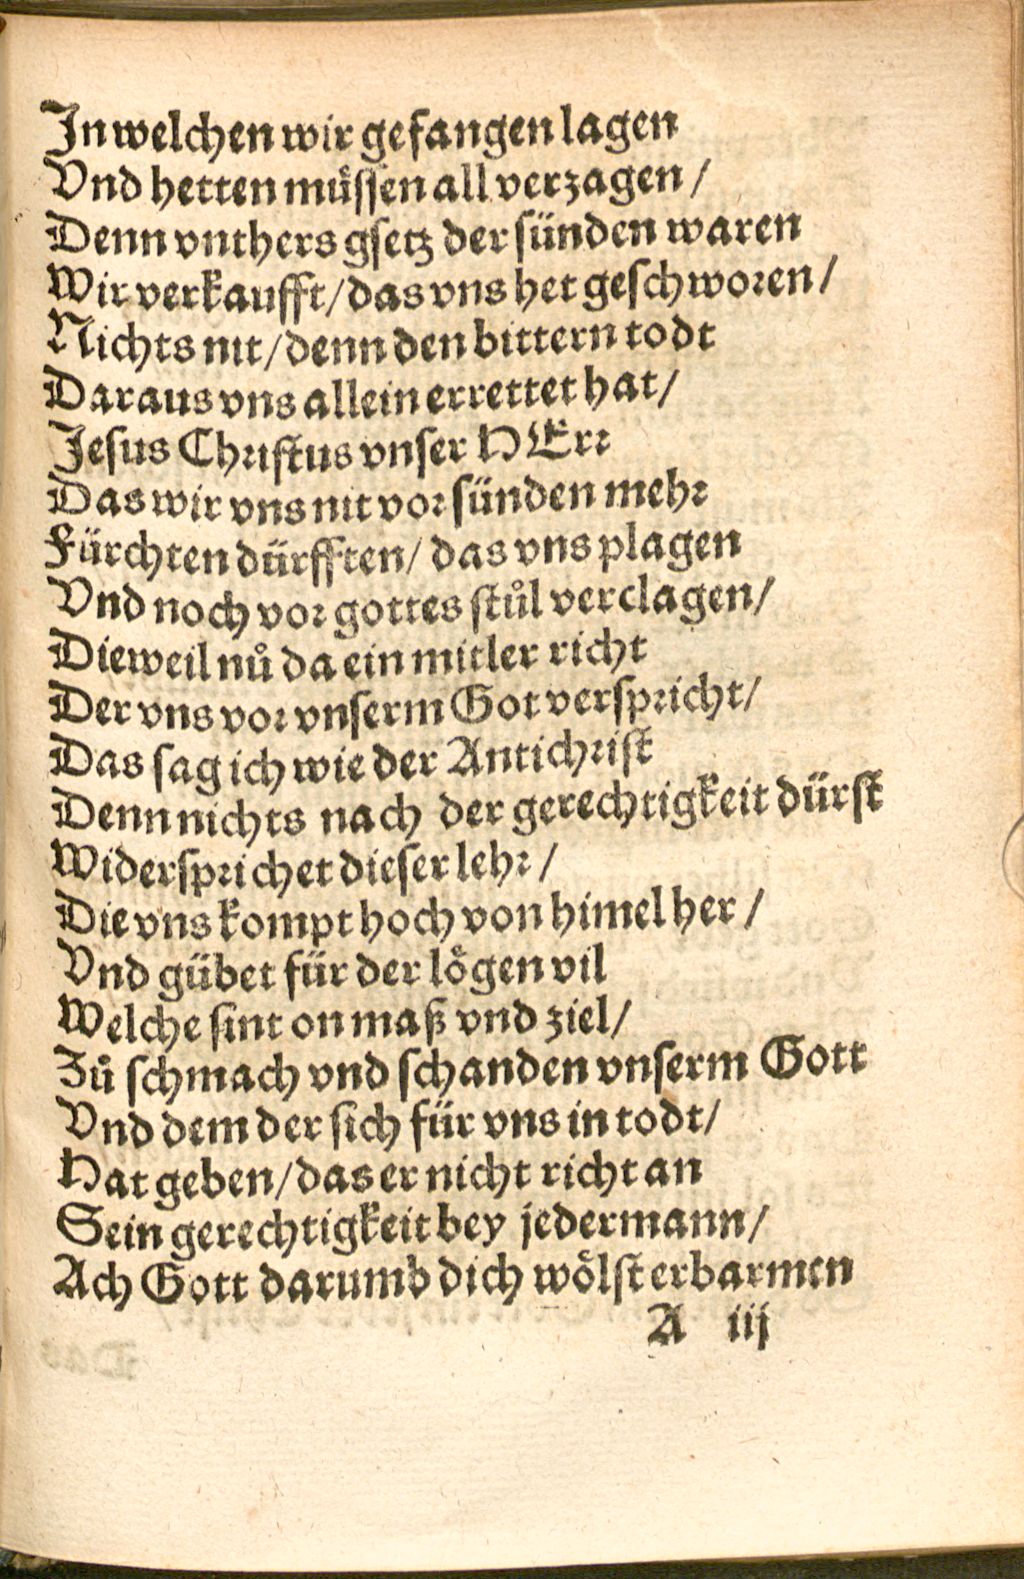 In welchen wir gefangen lagen
Vnd hetten müssen all verzagen /
Denn vnthers gsetz der sünden waren
Wir verkaufft / das vns het geschworen /
Nichts nit / denn den bittern todt
Daraus vns allein errettet hat /
Jesus Christus vnser HErr
Das wir vns nit vor sünden mehr
Fürchten dürfften / das vns plagen
Vnd noch vor gottes stůl verclagen /
Dieweil nů da ein mitler richt
Der vns vor vnserm Got verspricht /
Das sag ich wie der Antichrist
Denn nichts nach der gerechtigkeit dürst
Widersprichet dieser lehr /
Die vns kompt hoch von himel her /
Vnd gübet für der lögen vil
Welche sint on maß vnd ziel /
Zů schmach vnd schanden vnserm Gott
Vnd dem der sich für vns in todt /
Hat geben / das er nicht richt an
Sein gerechtigkeit bey jedermann /
Ach Gott darumb dich wölst erbarmen
A iij